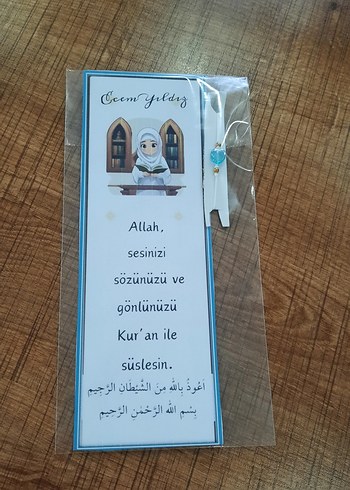 Ecem Yıldız
Allah,
sesinizi
sözünüzü ve
gönlünüzü
Kur'an ile
süslesin.
اَعُوذُ بِاللّٰهِ مِنَ الشَّيْطَانِ الرَّجِيمِ
بِسْمِ اللّٰهِ الرَّحْمٰنِ الرَّحِيمِ